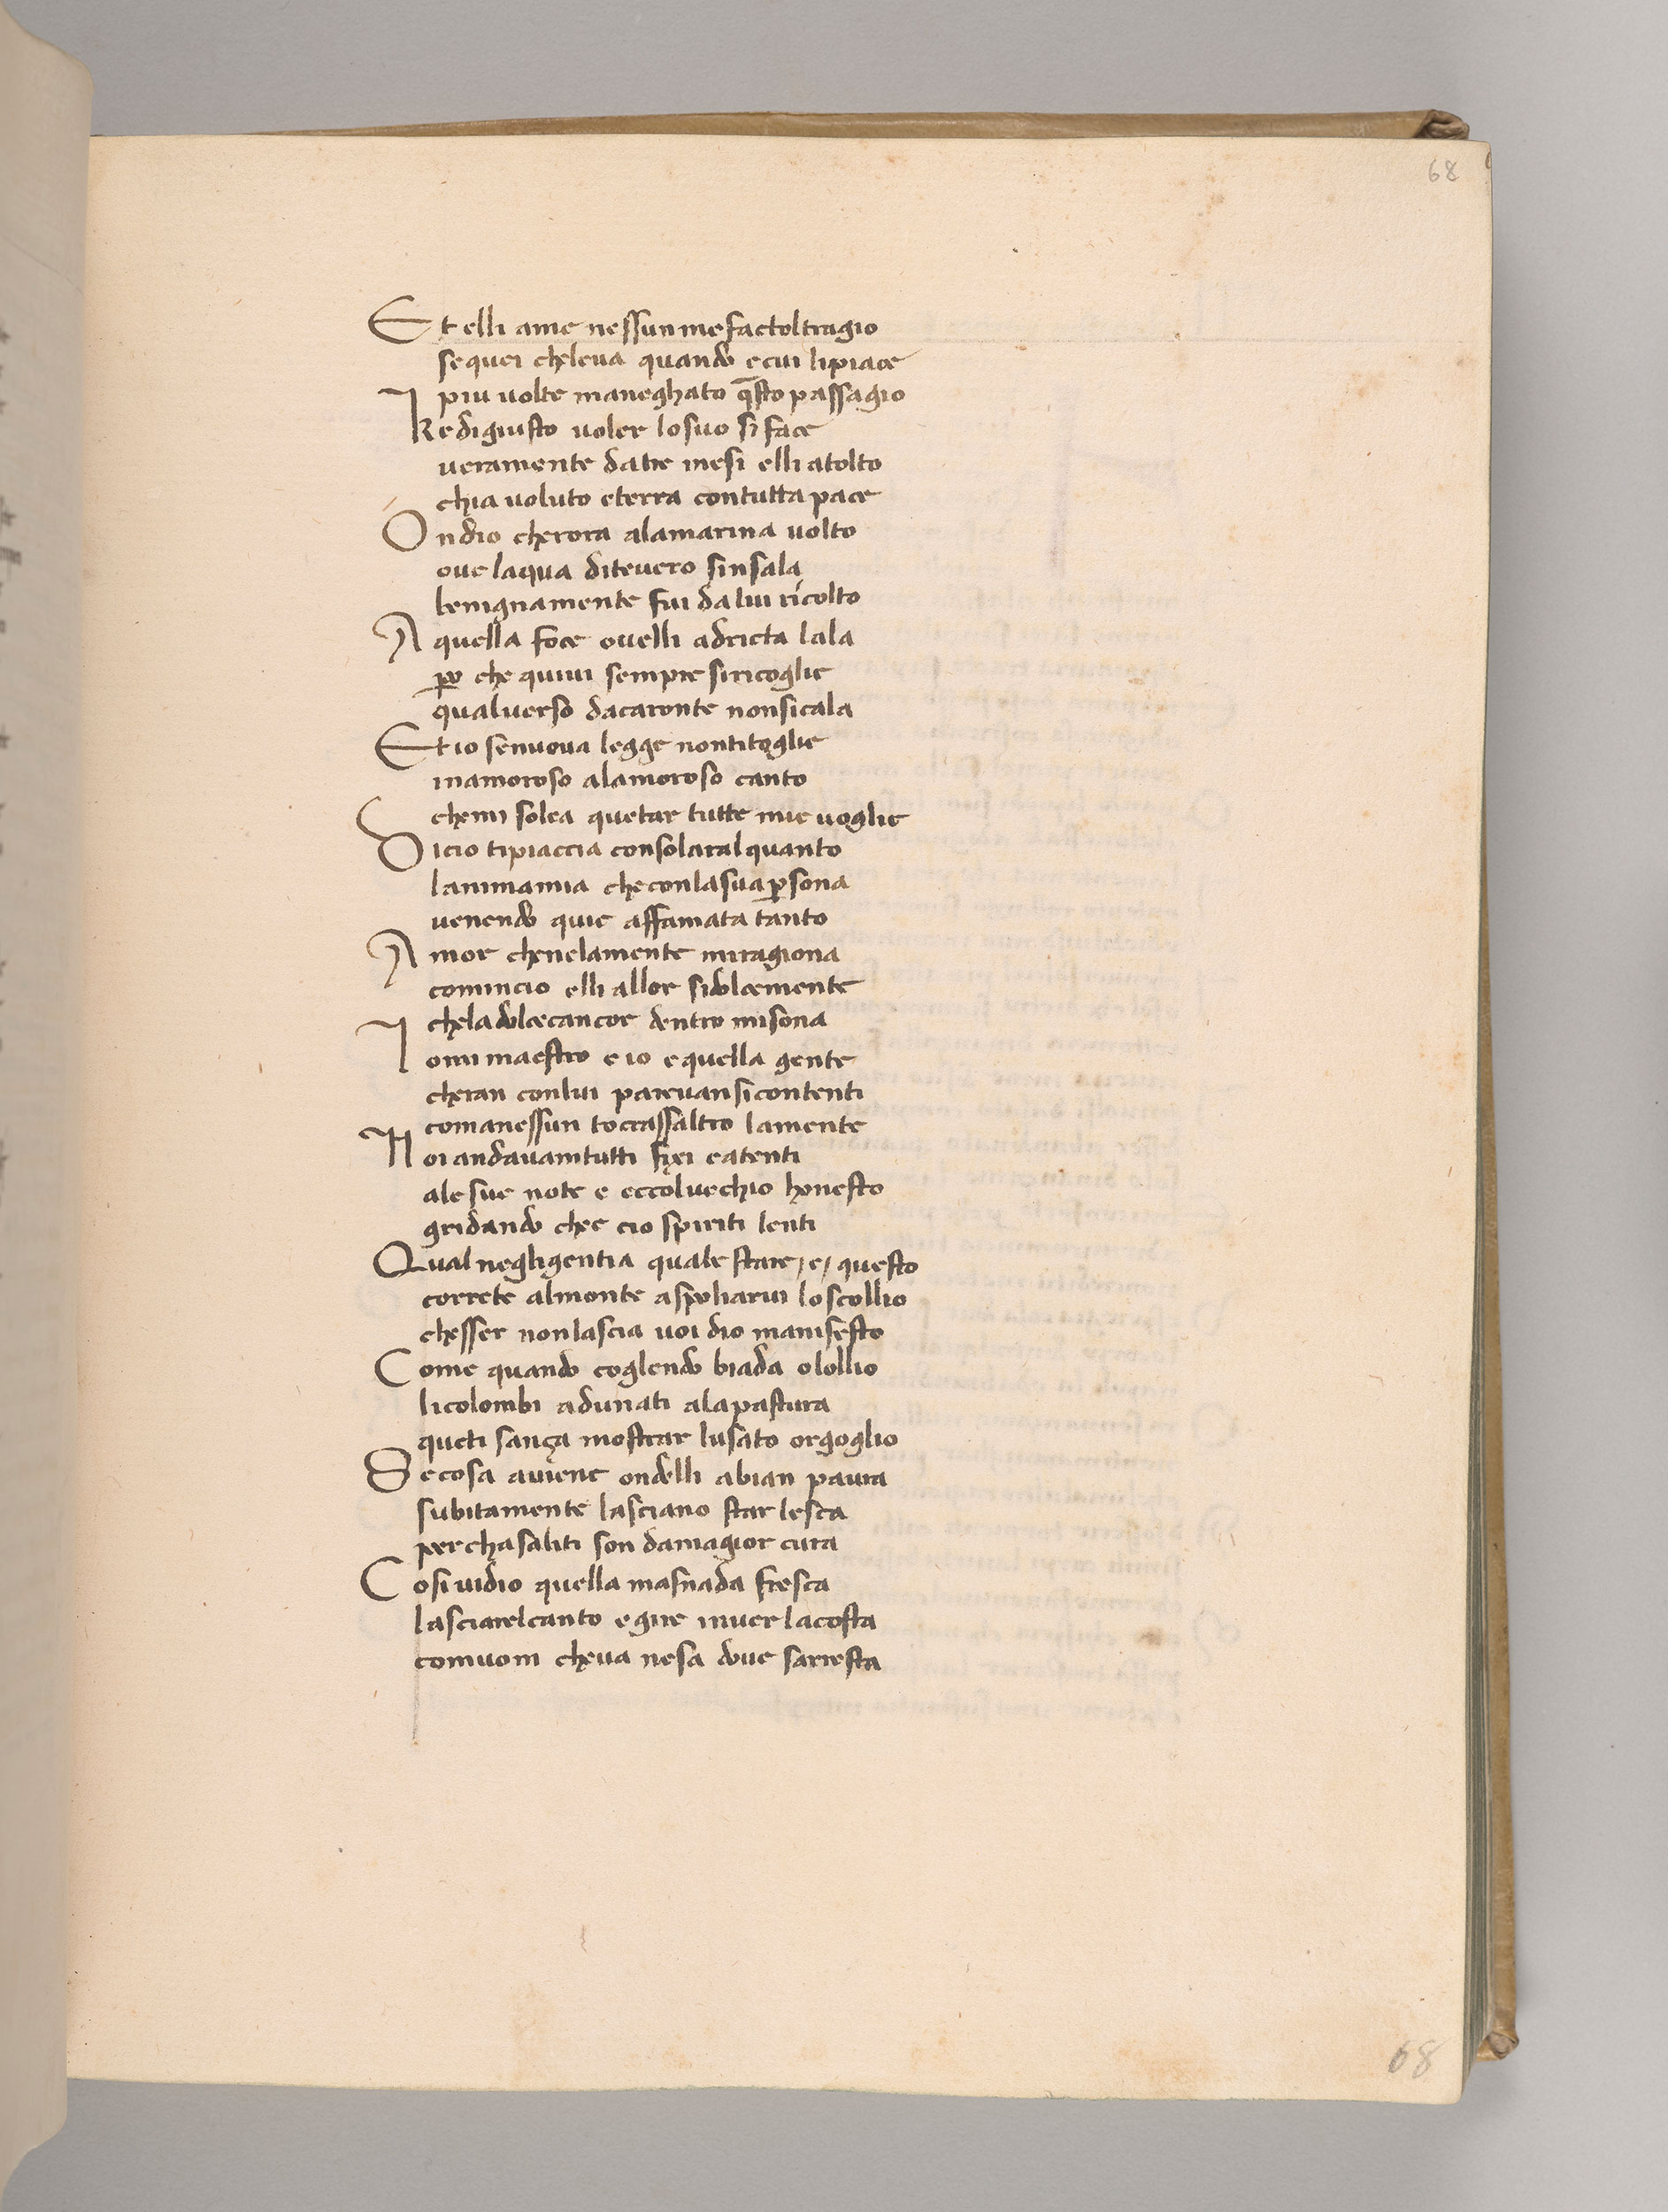 68
Et elli ame nessun mefactoltragio
sequei cheleua quando ecui lipiace
piu uolte maneghato q̄sto passagio
Ke digiusto uoler losuo si face
ueramente datre mesi elli atolto
chia uoluto eterra contutta pace
Ondio cherora alamarina uolto
oue laqua diteuero sinsala
benignamente fui dalui ricolto
A quella foce ouelli adricta lala
ꝑo che quiui sempre siricoglie
qualuerso dacaronte nonsicala
Et io senuoua legge nontitoglie
inamoroso alamoroso canto
chemi solea quetar tutte mie uoglie
Dicio tipiaccia consolaralquanto
lanimamia checonlasuaꝑsona
uenendo quie affamata tanto
Amor chenelamente miragiona
comincio elli allor sidolcemente
cheladolcecancor dentro misona
Iomimaestro e io equella gente
cheran conlui pareuansicontenti
comanessun toccassaltro lamente
Noi andauamtutti fixi eatenti
ale sue note e eccoluechio honesto
gridando chee cio spiriti lenti
Qual negligentia quale stare/e/ questo
correte almonte aspoliarui loscollio
chesser nonlascia uoi dio manifesto
Come quando coglendo biada olollio
licolombi adunati alapastura
queti sança mostrar lusato orgoglio
Se cosa auiene ondelli abian paura
subitamente lasciano star lesca
perchasaliti son damagior cura
Cosi uidio quella masnada fresca
lasciarelcanto egire inuer lacosta
comuom cheua nesa doue sariesta
68